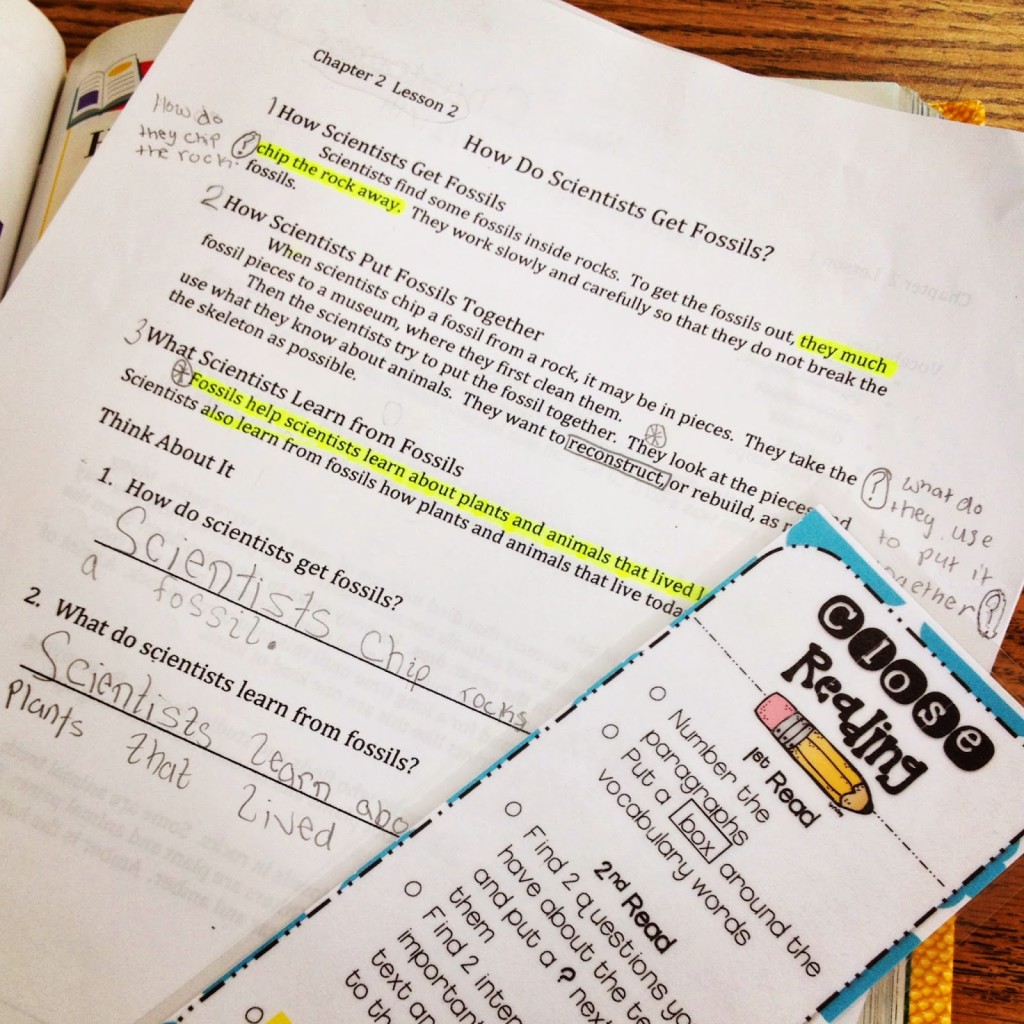 Chapter 2 Lesson 2
How Do Scientists Get Fossils?
How do
they chip
the rock.
1 How Scientists Get Fossils
Scientists find some fossils inside rocks. To get the fossils out, they much
? chip the rock away. They work slowly and carefully so that they do not break the
fossils.
2 How Scientists Put Fossils Together
When scientists chip a fossil from a rock, it may be in pieces. They take the
fossil pieces to a museum, where they first clean them.
Then the scientists try to put the fossil together. They look at the pieces
use what they know about animals. They want to reconstruct, or rebuild, as
the skeleton as possible.
? what do
they use
to put it
?
3 What Scientists Learn from Fossils
* Fossils help scientists learn about plants and animals that lived
Scientists also learn from fossils how plants and animals that live
Think About It
1. How do scientists get fossils?
Scientists Chip rocks
a fossil.
2. What do scientists learn from fossils?
Scientists learn
plants that lived
Close
Reading
1st Read
Number the
paragraphs
Put a box around the
vocabulary words
2nd Read
Find 2 questions
have about the
and put a ?
them
Find 2
text
to